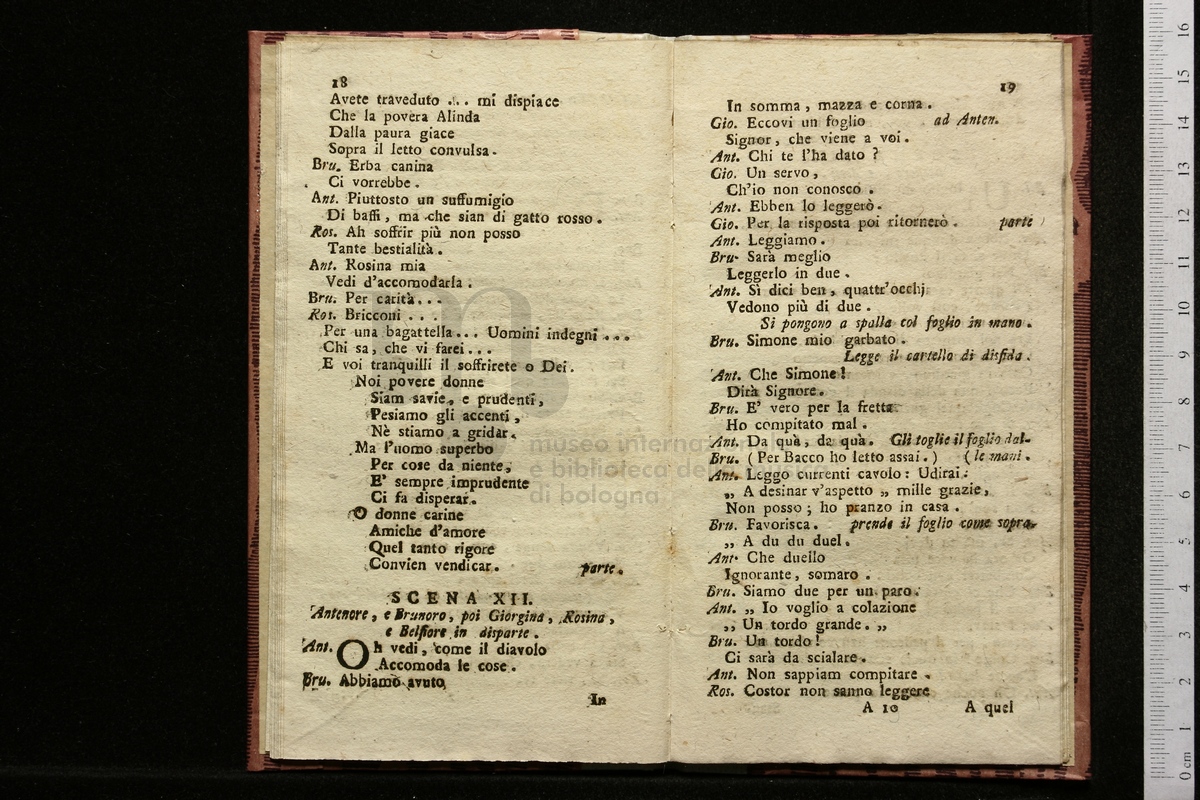 18
Avete traveduto ... mi dispiace
Che la povera Alinda
Dalla paura giace
Sopra il letto convulsa.
Bru. Erba canina
Ci vorrebbe.
Ant. Piuttosto un suffumigio
Di baffi, ma che sian di gatto rosso.
Ros. Ah soffrir più non posso
Tante bestialità.
Ant. Rosina mia
Vedi d'accomodarla.
Bru. Per carità...
Ros. Bricconi ...
Per una bagattella... Uomini indegni ...
Chi sa, che vi farei...
E voi tranquilli il soffrirete o Dei.
Noi povere donne
Siam savie, e prudenti,
Pesiamo gli accenti,
Nè stiamo a gridar.
Ma l'uomo superbo
Per cose da niente,
E' sempre imprudente
Ci fa disperar.
O donne carine
Amiche d'amore
Quel tanto rigore
Convien vendicar. parte.
SCENA XII.
Antenore, e Brunoro, poi Giorgina, Rosina,
e Belfiore in disparte.
Ant. Oh vedi, come il diavolo
Accomoda le cose.
Bru. Abbiamo avuto
In
19
In somma, mazza e corna.
Gio. Eccovi un foglio ad Anten.
Signor, che viene a voi.
Ant. Chi te l'ha dato ?
Gio. Un servo,
Ch'io non conosco.
Ant. Ebben lo leggerò.
Gio. Per la risposta poi ritornerò. parte
Ant. Leggiamo.
Bru. Sarà meglio
Leggerlo in due.
Ant. Sì dici ben, quattr'occhj
Vedono più di due.
Si pongono a spalla col foglio in mano.
Bru. Simone mio garbato.
Legge il cartello di disfida.
Ant. Che Simone!
Dirà Signore.
Bru. E' vero per la fretta
Ho compitato mal.
Ant. Da quà, da quà. Gli toglie il foglio dal-
Bru. (Per Bacco ho letto assai.) (le mani.
Ant. Leggo currenti cavolo: Udirai:
„ A desinar v'aspetto „ mille grazie,
Non posso; ho pranzo in casa.
Bru. Favorisca. prende il foglio come sopra.
„ A du du duel.
Ant. Che duello
Ignorante, somaro.
Bru. Siamo due per un paro.
Ant. „ Io voglio a colazione
„ Un tordo grande. „
Bru. Un tordo!
Ci sarà da scialare.
Ant. Non sappiam compitare.
Ros. Costor non sanno leggere
A 10 A quel
museo internazionale
e biblioteca della musica
di bologna
0 cm 1 2 3 4 5 6 7 8 9 10 11 12 13 14 15 16